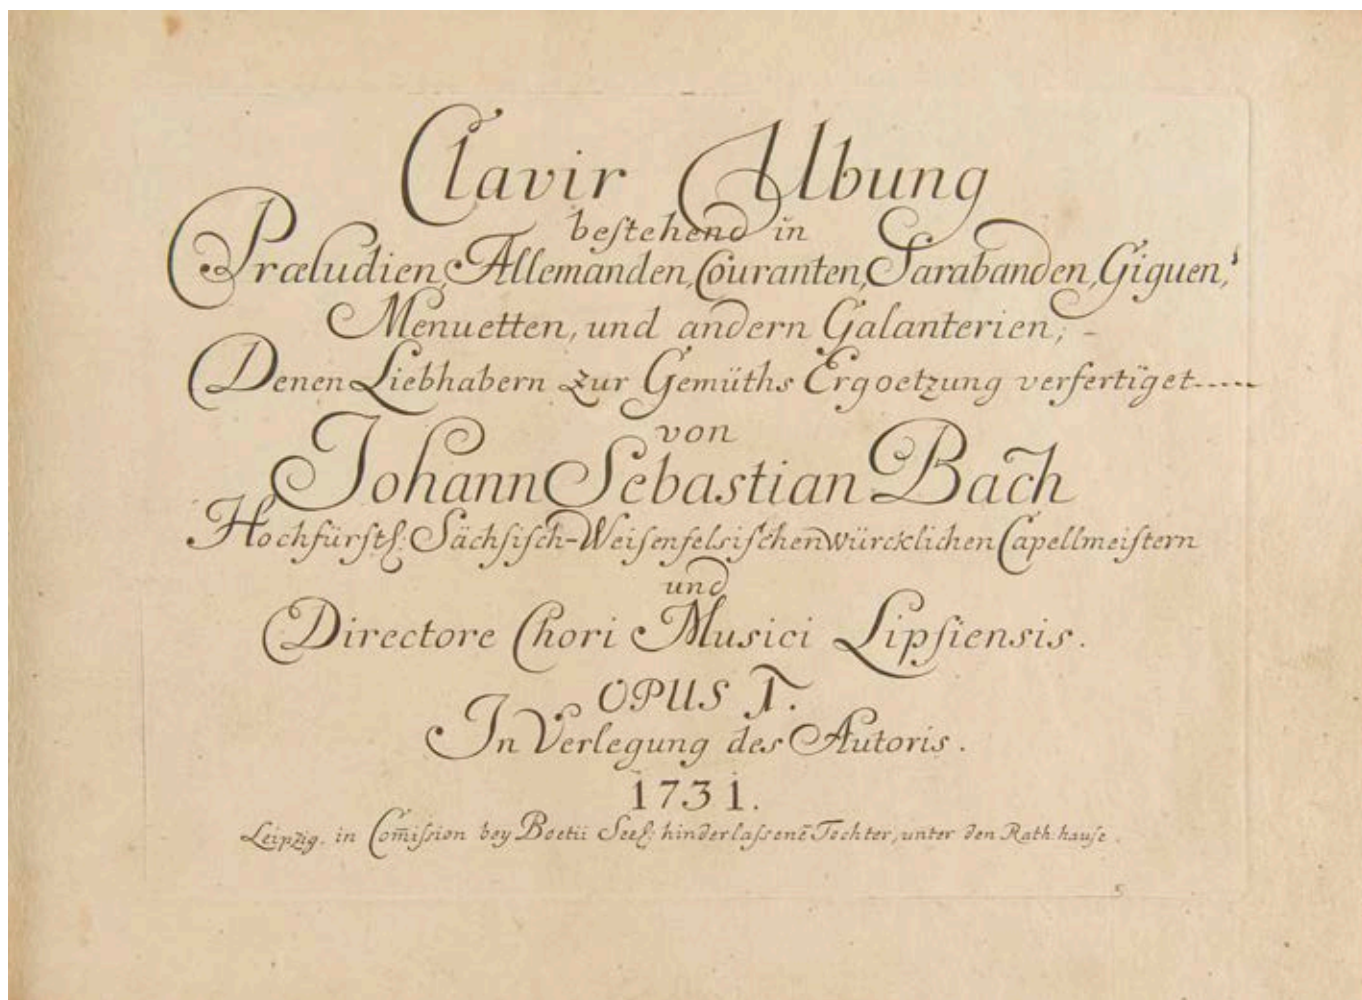 Clavir Ubung
bestehend in
Præludien, Allemanden, Couranten, Sarabanden, Giguen,
Menuetten, und andern Galanterien;
Denen Liebhabern zur Gemüths Ergoetzung verfertiget-----
von
Johann Sebastian Bach
Hochfürstl: Sächsisch-Weisenfelsischen würcklichen Capellmeistern
und
Directore Chori Musici Lipsiensis.
OPUS I.
In Verlegung des Autoris.
1731.
Leipzig, in Com̅ission bey Boetii Seel: hinderlassene̅ Tochter, unter den Rath-hause.